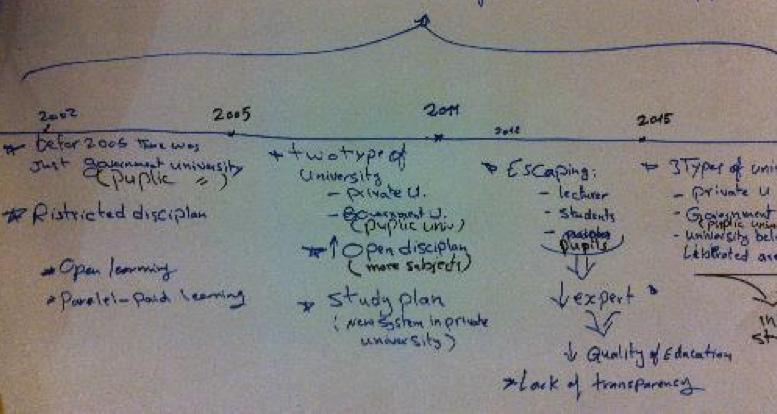 2002
2005
2011
2012
2015
befor 2005 there was
Just government university
(puplic = )
Ristricted disciplan
Open learning
Paralel-paid learning
two type of
University
- private U.
- Government U.
(puplic univ)
↑ Open disciplan
(more subjects)
Study plan
(New system in private
university)
Escaping:
- lecturer
- students
- pupils
↓ expert
↓ Quality of Education
Lack of transparency
3 Types of univ
- private U
- Government
(puplic univ
- university belo
Leberated are
in
st